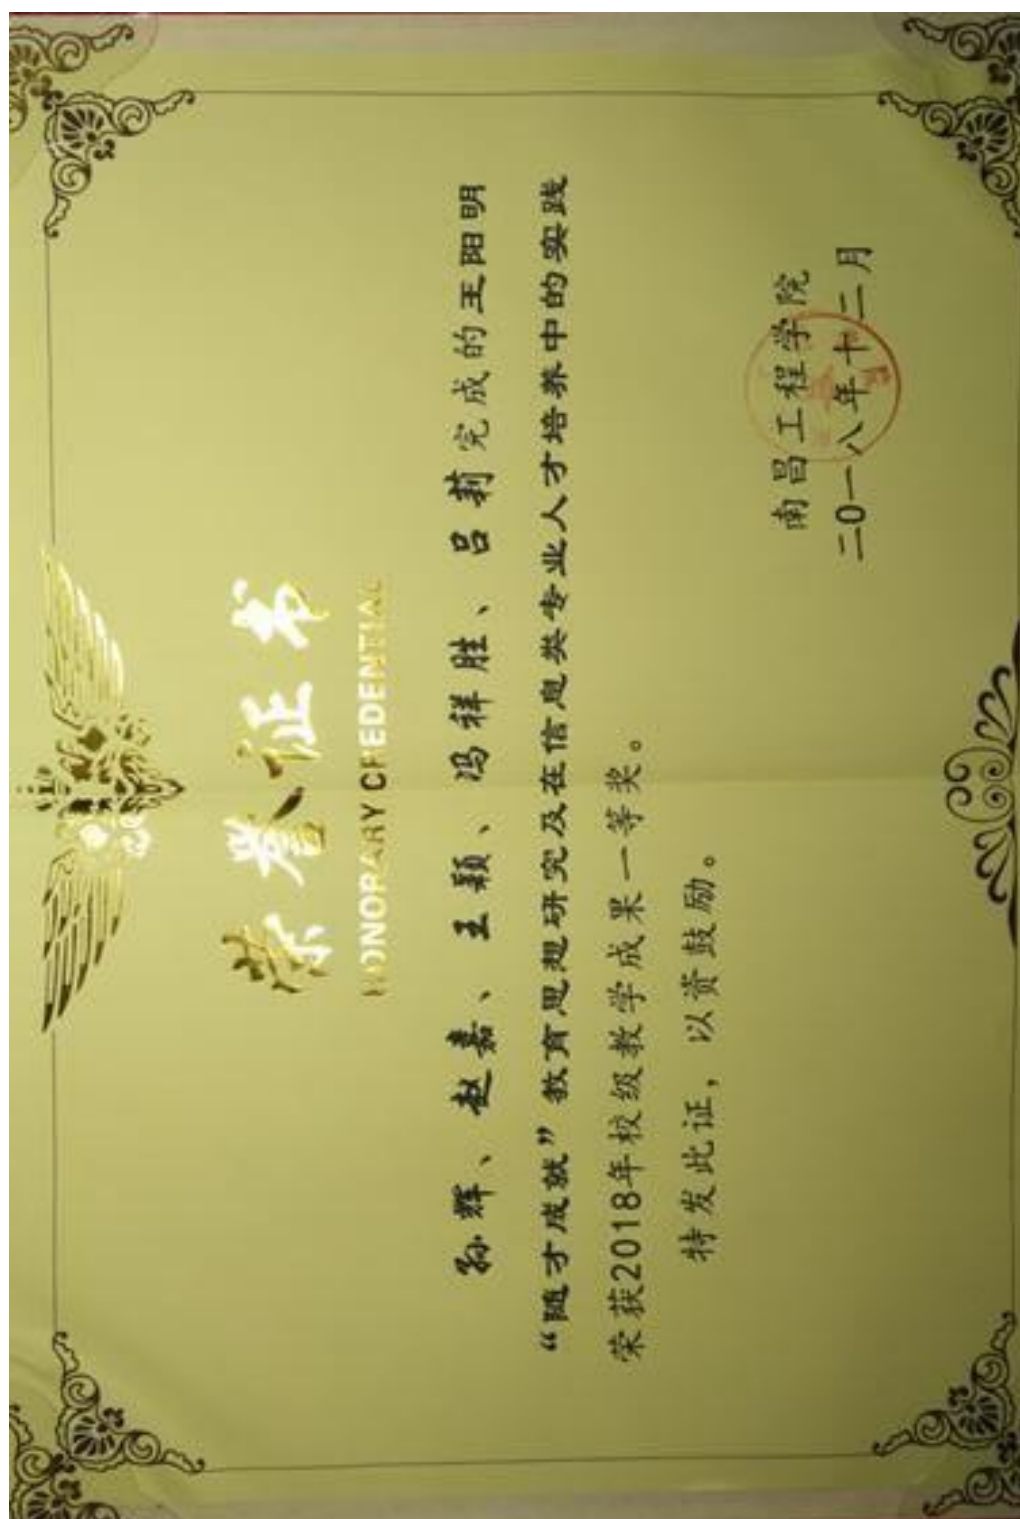 荣誉证书
HONORARY CREDENTIAL
孙辉、赵嘉、王颖、冯祥胜、吕莉完成的王阳明
“随才成就”教育思想研究及在信息类专业人才培养中的实践
荣获2018年校级教学成果一等奖。
特发此证，以资鼓励。
南昌工程学院
二0一八年十二月